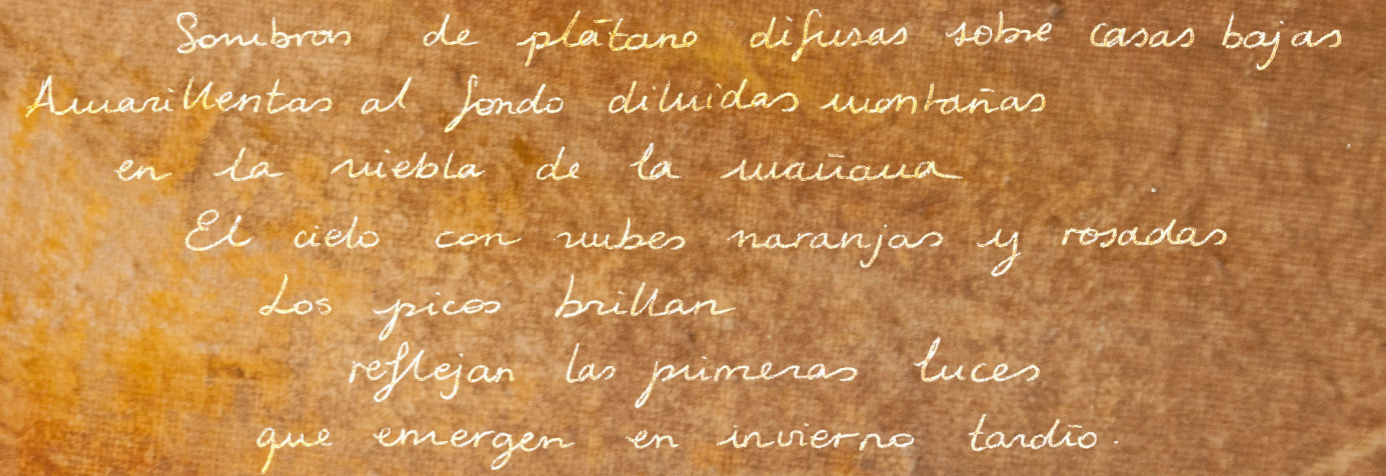 Sombras de plátano difusas sobre casas bajas
Amarillentas al fondo diluidas montañas
en la niebla de la mañana
El cielo con nubes naranjas y rosadas
Los picos brillan
reflejan las primeras luces
que emergen en invierno tardío.